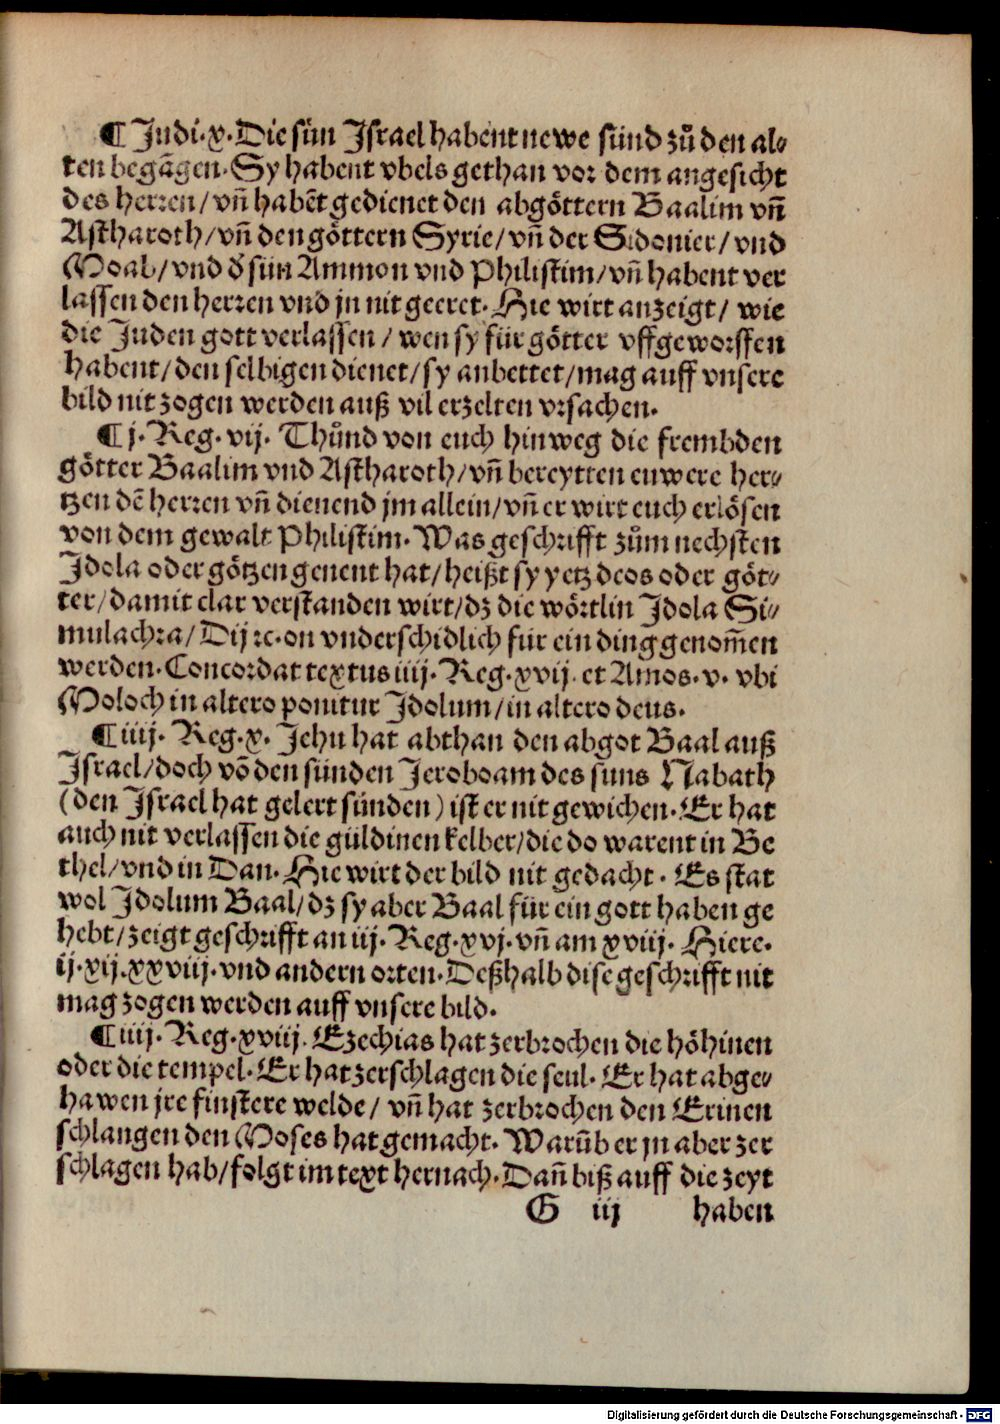 ¶ Judi. x. Die sün Israel habent newe sünd zů den al⸗
ten begāgen. Sy habent vbels gethan vor dem angesicht
des herren / vñ habēt gedienet den abgöttern Baalim vñ
Astharoth / vñ den göttern Syrie / vñ der Sidonier / vnd
Moab / vnd d̓ sün Ammon vnd Philistim / vñ habent ver
lassen den herren vnd jn nit geeret. Hie wirt anzeigt / wie
die Juden gott verlassen / wen sy für götter vffgeworffen
habent / den selbigen dienet / sy anbettet / mag auff vnsere
bild nit zogen werden auß vil erzelten vrsachen.
¶ j. Reg. vij. Thůnd von euch hinweg die frembden
götter Baalim vnd Astharoth / vñ bereytten euwere her⸗
tzen dē herren vñ dienend jm allein / vñ er wirt euch erlösen
von dem gewalt Philistim. Was geschrifft zům nechsten
Idola oder götzen genent hat / heißt sy yetz deos oder göt⸗
ter / damit clar verstanden wirt / dz die wörtlin Idola Si⸗
mulachra / Dij ꝛc. on vnderschidlich für ein ding genom̄en
werden. Concordat textus iiij. Reg. xvij. et Amos. v. vbi
Moloch in altero ponitur Idolum / in altero deus.
¶ iiij. Reg. x. Jehu hat abthan den abgot Baal auß
Israel / doch vō den sünden Jeroboam des suns Nabath
(den Israel hat gelert sünden) ist er nit gewichen. Er hat
auch nit verlassen die güldinen kelber / die do warent in Be
thel / vnd in Dan. Hie wirt der bild nit gedacht. Es stat
wol Idolum Baal / dz sy aber Baal für ein gott haben ge
hebt / zeigt geschrifft an iij. Reg. xvj. vñ am xviij. Hiere.
ij. xij. xxviij. vnd andern orten. Deßhalb dise geschrifft nit
mag zogen werden auff vnsere bild.
¶ iiij. Reg. xviij. Ezechias hat zerbrochen die höhinen
oder die tempel. Er hat zerschlagen die seul. Er hat abge⸗
hawen jre finstere welde / vñ hat zerbrochen den Erinen
schlangen den Moses hat gemacht. Warūb er jn aber zer
schlagen hab / folgt im text hernach. Dañ biß auff die zeyt
G iij haben
Digitalisierung gefördert durch die Deutsche Forschungsgemeinschaft - DFG